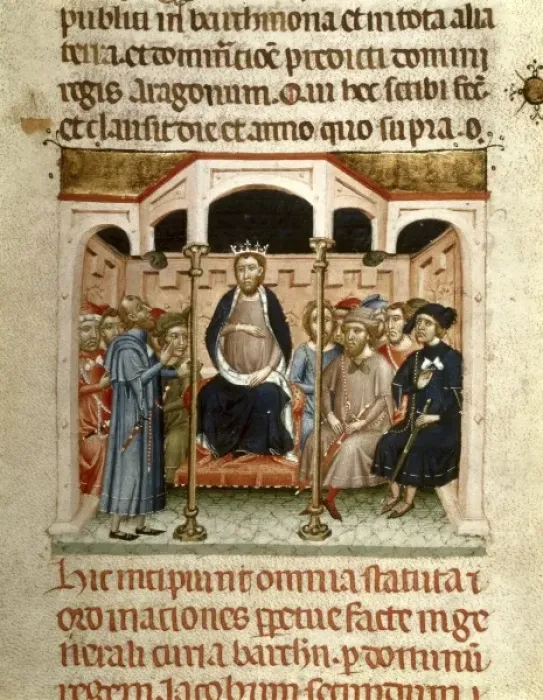 publici in barchinona et in tota alia
terra. et dominacioē predicti domini
regis Aragonum. Qui hec scribi fec̄
et clausit die et anno quo supra.
Hic incipiunt omnia statuta ⁊
ordinaciones ꝑpetue facte in ge
nerali curia barchn̄. ꝑ dominū
regem Jacobum secundum